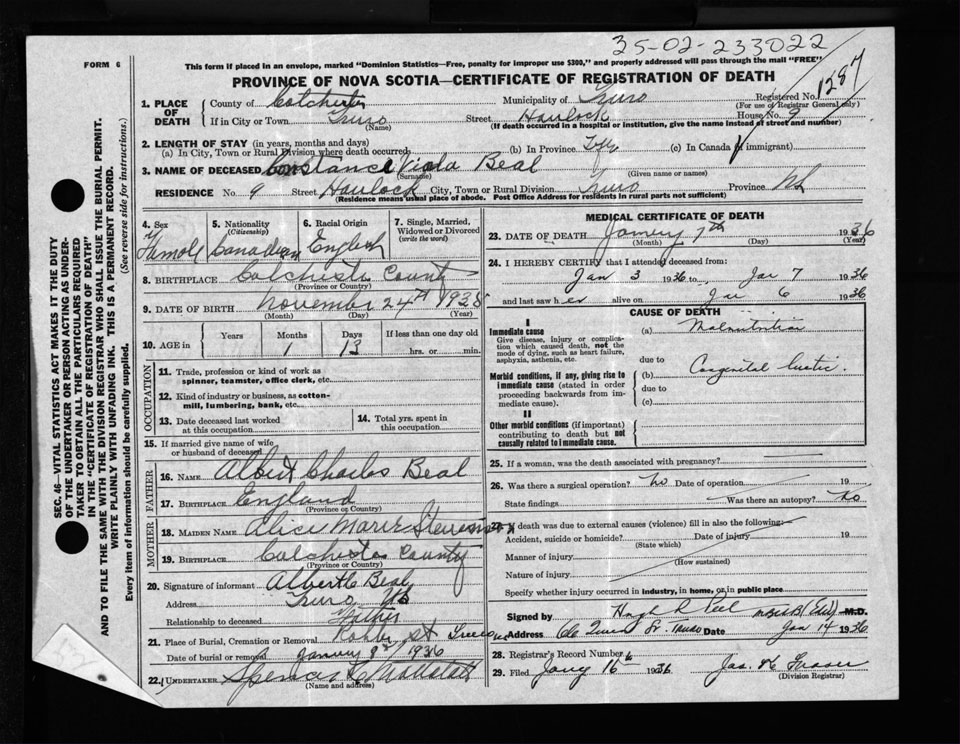 35-02-233022
FORM 6
This form if placed in an envelope, marked "Dominion Statistics—Free, penalty for improper use $300," and properly addressed will pass through the mail "FREE"
PROVINCE OF NOVA SCOTIA—CERTIFICATE OF REGISTRATION OF DEATH
Registered No. 1287
(For use of Registrar General only)
1. PLACE OF DEATH
County of Colchester Municipality of Truro
If in City or Town Truro Street Havelock House No. 9
(Name) (If death occurred in a hospital or institution, give the name instead of street and number)
2. LENGTH OF STAY (in years, months and days)
(a) In City, Town or Rural Division where death occurred (b) In Province (c) In Canada (if immigrant)
3. NAME OF DECEASED Constance Viola Beal
(Surname) (Given name or names)
RESIDENCE No. 9 Street Havlock City, Town or Rural Division Truro Province NS
(Residence means usual place of abode. Post Office Address for residents in rural parts not sufficient)
4. Sex 5. Nationality (Citizenship) 6. Racial Origin 7. Single, Married, Widowed or Divorced (write the word)
Canadian English
8. BIRTHPLACE Colchester County
(Province or Country)
9. DATE OF BIRTH November 24th 1935
(Month) (Day) (Year)
10. AGE in Years Months Days If less than one day old
1 13 hrs. or min.
OCCUPATION
11. Trade, profession or kind of work as spinner, teamster, office clerk, etc.
12. Kind of industry or business, as cotton-mill, lumbering, bank, etc.
13. Date deceased last worked at this occupation
14. Total yrs. spent in this occupation
15. If married give name of wife or husband of deceased
FATHER
16. NAME Albert Charles Beal
17. BIRTHPLACE England
MOTHER
18. MAIDEN NAME Alice Marie
19. BIRTHPLACE Colchester County
(Province or Country)
20. Signature of informant Albert C Beal
Address Truro NS
Relationship to deceased Father
21. Place of Burial, Cremation or Removal St
Date of burial or removal January 8th 1936
22. UNDERTAKER Spencer
(Name and address)
MEDICAL CERTIFICATE OF DEATH
23. DATE OF DEATH 7th 1936
(Month) (Day) (Year)
24. I HEREBY CERTIFY that I attended deceased from:
Jan 3 1936 to Jan 7 1936
and last saw her alive on Jan 6 1936
CAUSE OF DEATH
I
Immediate cause
Give disease, injury or complication which caused death, not the mode of dying, such as heart failure, asphyxia, asthenia, etc.
(a) Malnutrition
due to
Morbid conditions, if any, giving rise to immediate cause (stated in order proceeding backwards from immediate cause).
(b) Congenital
due to
(c)
II
Other morbid conditions (if important) contributing to death but not causally related to immediate cause.
25. If a woman, was the death associated with pregnancy?
26. Was there a surgical operation? no Date of operation 19
State findings Was there an autopsy? no
27. If death was due to external causes (violence) fill in also the following:
Accident, suicide or homicide? Date of injury 19
(State which)
Manner of injury
(How sustained)
Nature of injury
Specify whether injury occurred in industry, in home, or in public place
Signed by Hugh R Peel M.D.
Address Date Jan 14 1936
28. Registrar's Record Number 6
29. Filed 16 1936 Fraser
(Division Registrar)
SEC. 46—VITAL STATISTICS ACT MAKES IT THE DUTY
OF THE UNDERTAKER OR PERSON ACTING AS UNDER-
TAKER TO OBTAIN ALL THE PARTICULARS REQUIRED
IN THE "CERTIFICATE OF REGISTRATION OF DEATH"
AND TO FILE THE SAME WITH THE DIVISION REGISTRAR WHO SHALL ISSUE THE BURIAL PERMIT.
WRITE PLAINLY WITH UNFADING INK. THIS IS A PERMANENT RECORD.
Every item of information should be carefully supplied. (See reverse side for instructions.)